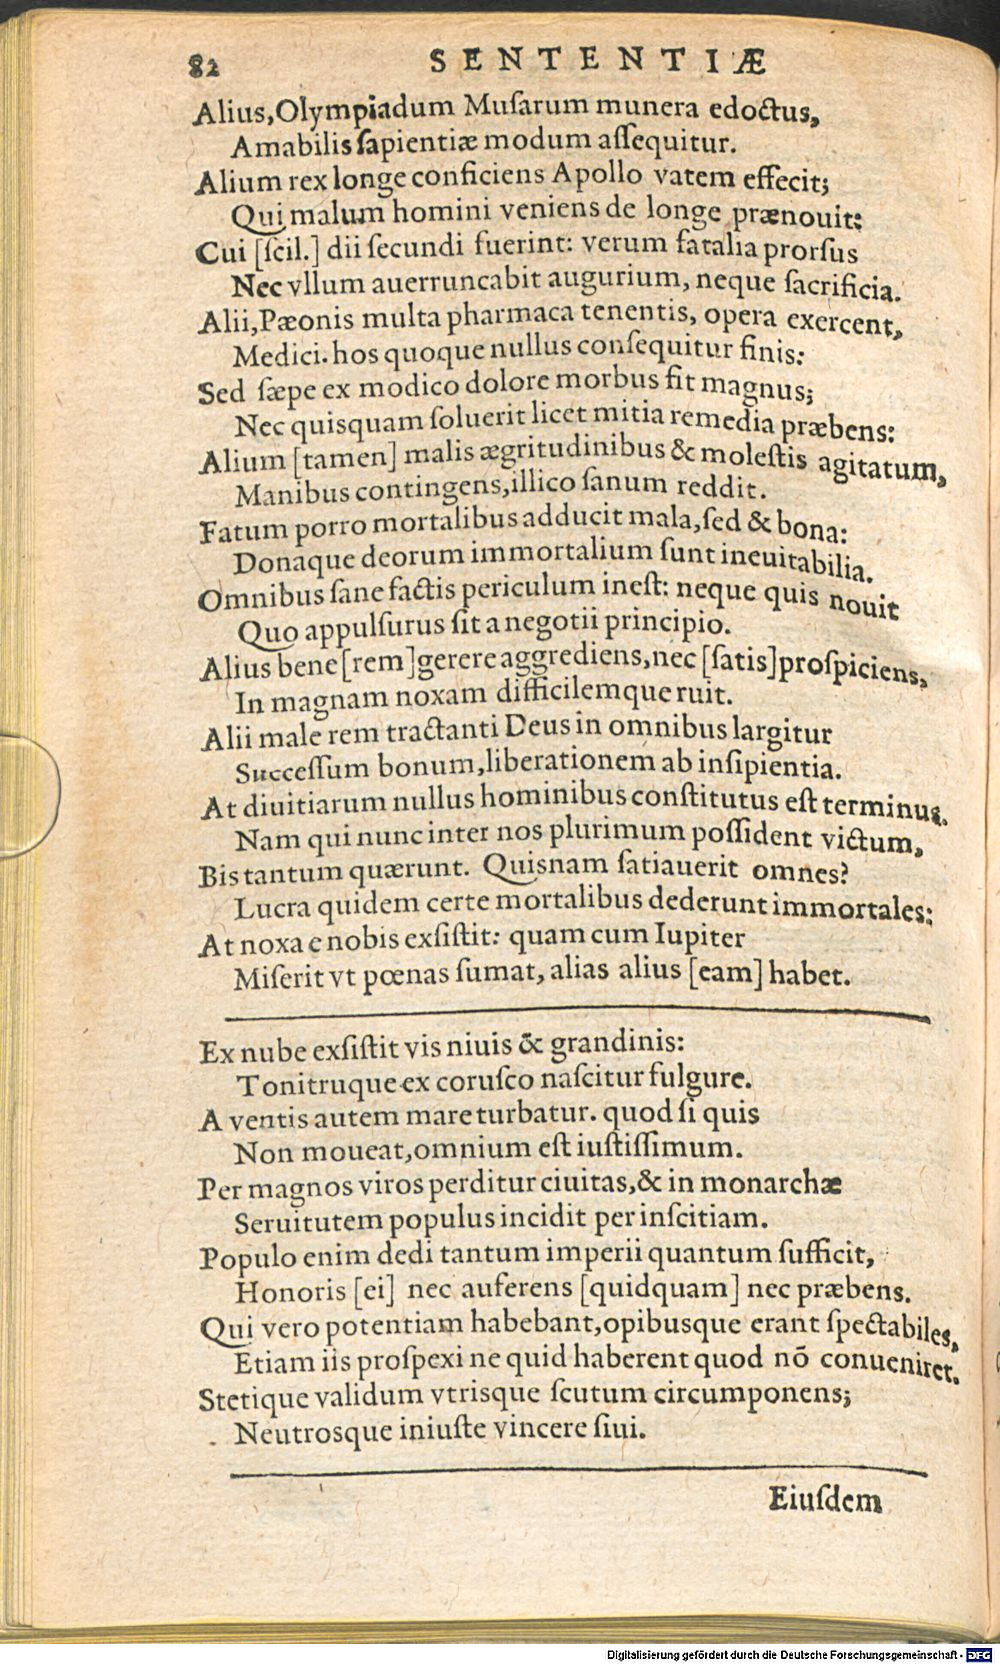 82 SENTENTIÆ
Alius,Olympiadum Muſarum munera edoctus,
Amabilis ſapientiæ modum aſſequitur.
Alium rex longe conficiens Apollo vatem effecit;
Qui malum homini veniens de longe prænouit:
Cui [ſcil.] dii ſecundi fuerint: verum fatalia prorſus
Nec vllum auerruncabit augurium, neque ſacrificia.
Alii,Pæonis multa pharmaca tenentis, opera exercent,
Medici. hos quoque nullus conſequitur finis:
Sed ſæpe ex modico dolore morbus fit magnus;
Nec quisquam ſoluerit licet mitia remedia præbens:
Alium [tamen] malis ægritudinibus & moleſtis agitatum,
Manibus contingens,illico ſanum reddit.
Fatum porro mortalibus adducit mala,ſed & bona:
Donaque deorum immortalium ſunt ineuitabilia.
Omnibus ſane factis periculum ineſt: neque quis nouit
Quo appulſurus ſit a negotii principio.
Alius bene [rem] gerere aggrediens,nec [ſatis] proſpiciens,
In magnam noxam difficilemque ruit.
Alii male rem tractanti Deus in omnibus largitur
Succeſſum bonum,liberationem ab inſipientia.
At diuitiarum nullus hominibus conſtitutus eſt terminus.
Nam qui nunc inter nos plurimum poſſident victum,
Bis tantum quærunt. Quisnam ſatiauerit omnes?
Lucra quidem certe mortalibus dederunt immortales:
At noxa e nobis exſiſtit: quam cum Iupiter
Miſerit vt pœnas ſumat, alias alius [eam] habet.
Ex nube exſiſtit vis niuis & grandinis:
Tonitruque ex coruſco naſcitur fulgure.
A ventis autem mare turbatur. quod ſi quis
Non moueat,omnium eſt iuſtiſſimum.
Per magnos viros perditur ciuitas,& in monarchæ
Seruitutem populus incidit per inſcitiam.
Populo enim dedi tantum imperii quantum ſufficit,
Honoris [ei] nec auferens [quidquam] nec præbens.
Qui vero potentiam habebant,opibusque erant ſpectabiles,
Etiam iis proſpexi ne quid haberent quod nō conueniret.
Stetique validum vtrisque ſcutum circumponens;
Neutrosque iniuſte vincere ſiui.
Eiuſdem
Digitalisierung gefördert durch die Deutsche Forschungsgemeinschaft - DFG